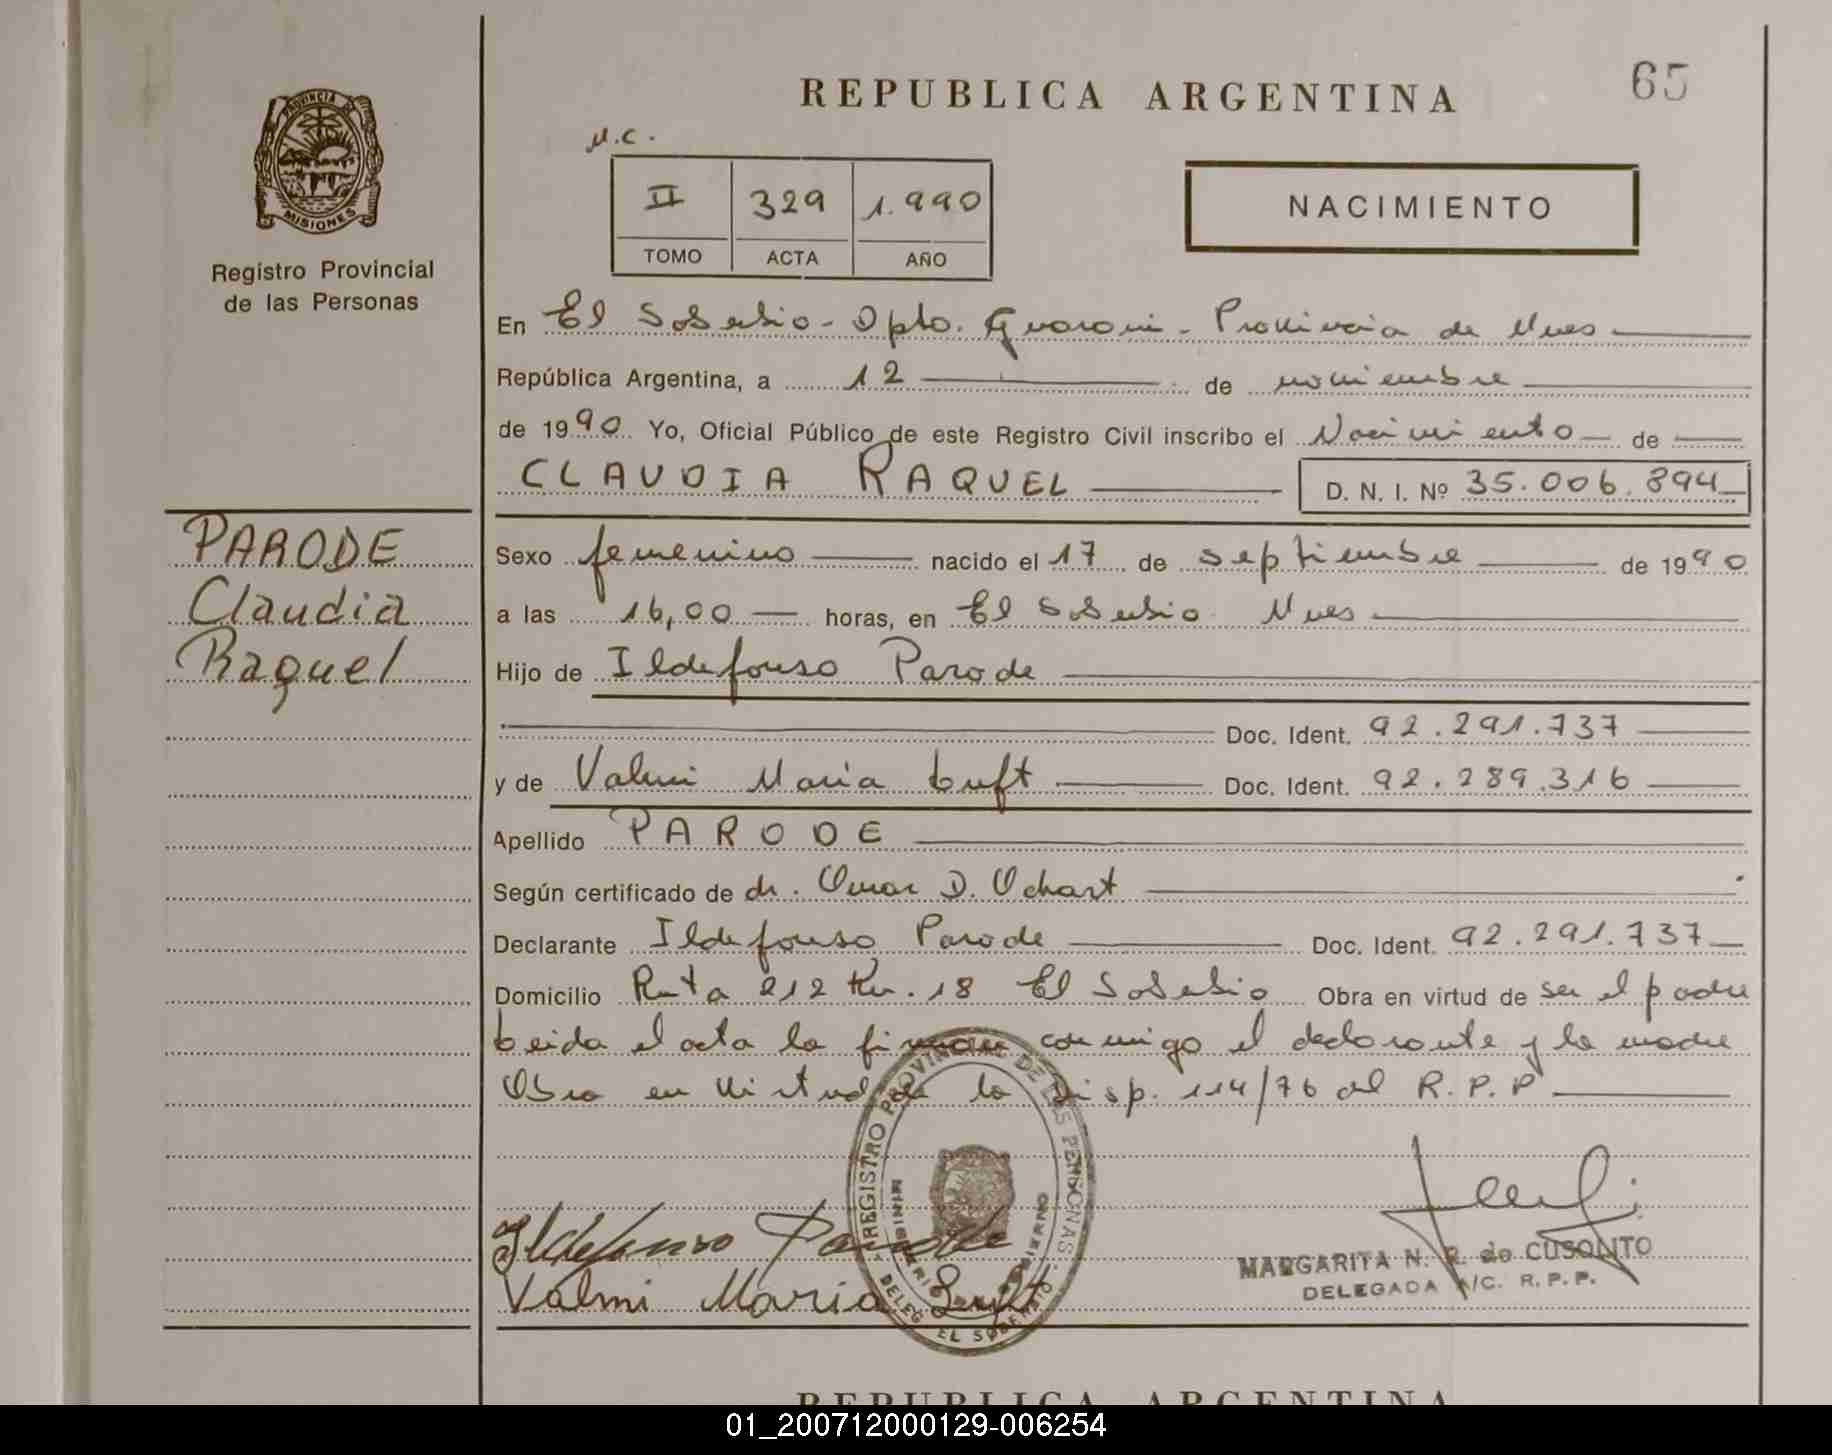 REPUBLICA ARGENTINA
65
PROVINCIA DE
MISIONES
Registro Provincial
de las Personas
M.C.
II 329 1.990
TOMO ACTA AÑO
NACIMIENTO
En El Soberbio - Dpto. Guarani - Provincia de Mnes
República Argentina, a 12 de noviembre
de 1990 Yo, Oficial Público de este Registro Civil inscribo el Nacimiento de
CLAUDIA RAQUEL D. N. I. Nº 35.006.894
PARODE
Claudia
Raquel
Sexo femenino nacido el 17 de septiembre de 1990
a las 16,00 horas, en El Soberbio Mnes
Hijo de Ildefonso Parode
Doc. Ident. 92.291.737
y de Valmi Maria Luft Doc. Ident. 92.289.316
Apellido PARODE
Según certificado de dr. Omar D. Ochart
Declarante Ildefonso Parode Doc. Ident. 92.291.737
Domicilio Ruta 212 Km. 18 El Soberbio Obra en virtud de ser el padre
Leida el acta la firman conmigo el declarante y la madre
Obra en virtud de la Disp. 114/76 del R.P.P
REGISTRO PROVINCIAL DE LAS PERSONAS
MINISTERIO DE GOBIERNO
DELEG. EL SOBERBIO
Ildefonso Parode
Valmi Maria Luft
MARGARITA N. R. de CUSOLITO
DELEGADA A/C. R.P.P.
REPUBLICA ARGENTINA
01_200712000129-006254